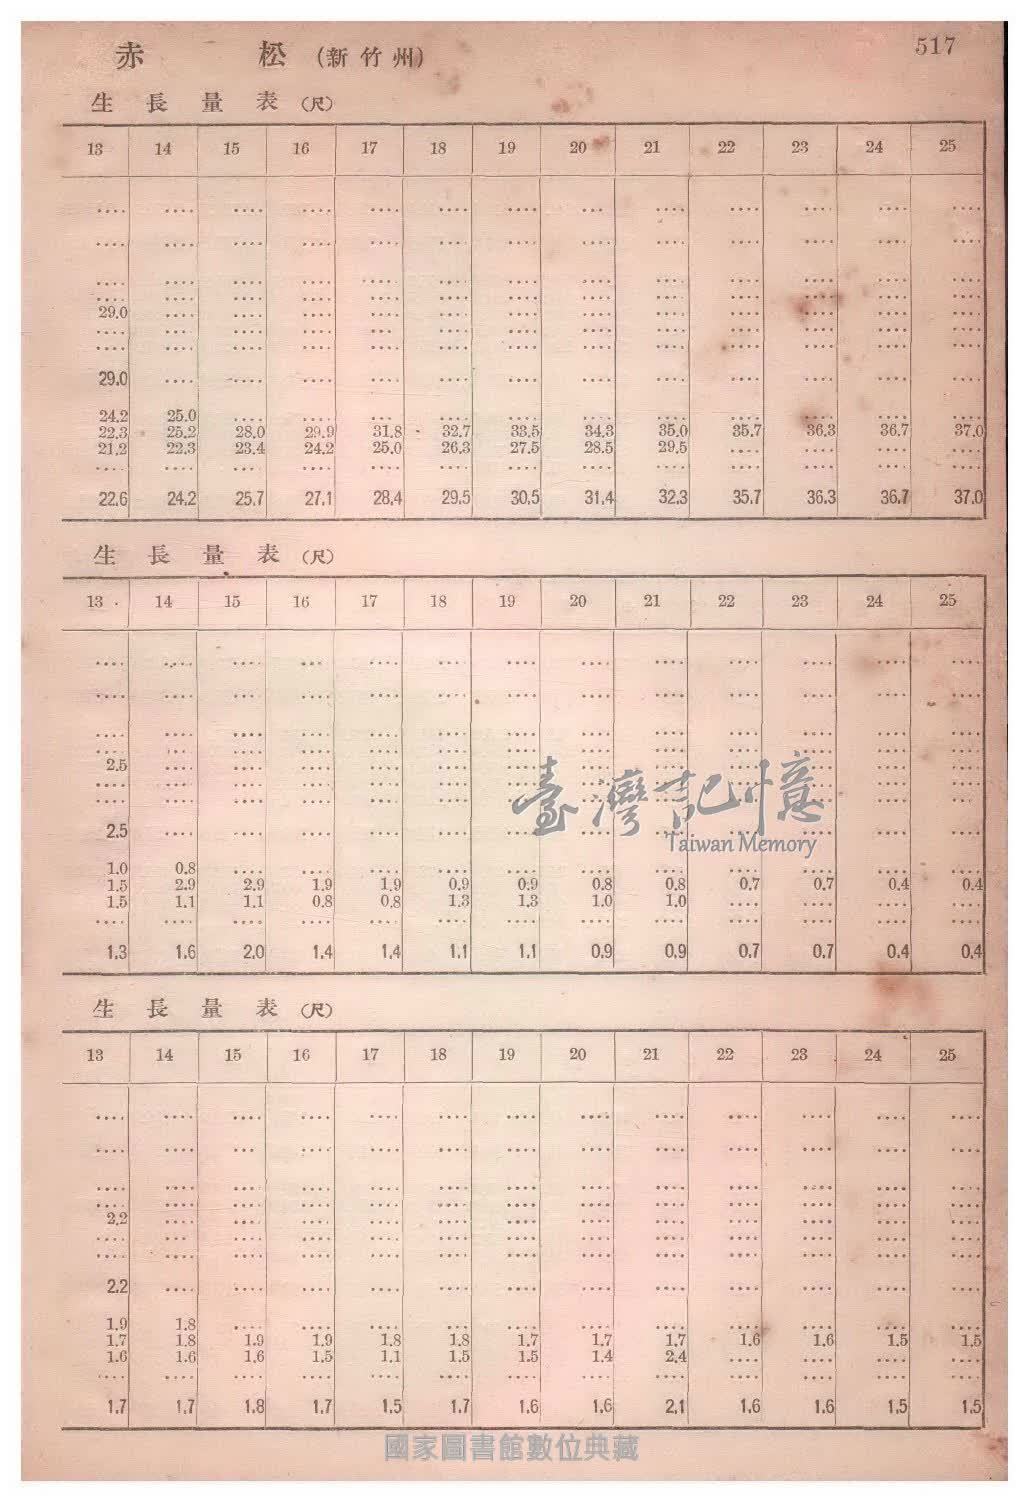 赤 松 (新竹州) 517
生長量表(尺)
13 14 15 16 17 18 19 20 21 22 23 24 25
.... .... .... .... .... .... .... ... .... .... .... .... ....
.... .... .... .... .... .... .... .... .... .... .... .... ....
.... .... .... .... .... .... .... .... .... .... .... .... ....
.... .... .... .... .... .... .... .... .... .... .... .... ....
29.0 .... .... .... .... .... .... .... .... .... .... .... ....
.... ... .... .... .... .... .... .... .... .... .... .... ....
.... .... .... .... .... .... .... .... .... .... .... .... ....
29.0 .... .... .... .... .... .... .... .... .... .... .... ....
24.2 25.0 .... .... ... .... .... .... .... .... .... .... ....
22.3 25.2 28.0 29.9 31.8 32.7 33.5 34.3 35.0 35.7 36.3 36.7 37.0
21.2 22.3 23.4 24.2 25.0 26.3 27.5 28.5 29.5 .... .... .... ....
.... .... .... .... .... .... .... .... .... .... .... .... ....
22.6 24.2 25.7 27.1 28.4 29.5 30.5 31.4 32.3 35.7 36.3 36.7 37.0
生長量表(尺)
13 14 15 16 17 18 19 20 21 22 23 24 25
.... .... .... ... .... .... .... .... .... .... .... .... ....
.... .... .... .... .... .... .... .... .... .... .... .... ....
.... .... .... .... .... .... .... .... .... .... .... .... ....
.... ... .... .... .... .... .... .... .... .... .... .... ....
2.5 .... .... .... .... .... .... .... .... .... .... .... ....
.... .... .... .... .... .... .... .... .... .... .... .... ....
.... .... .... .... .... .... .... .... .... .... .... .... ....
臺灣記憶
2.5 .... .... .... .... .... .... .... .... .... .... .... ....
Taiwan Memory
1.0 0.8 .... .... .... .... .... .... .... .... .... .... ....
1.5 2.9 2.9 1.9 1.9 0.9 0.9 0.8 0.8 0.7 0.7 0.4 0.4
1.5 1.1 1.1 0.8 0.8 1.3 1.3 1.0 1.0 .... .... .... ....
.... .... .... .... .... .... .... .... .... .... .... .... ....
1.3 1.6 2.0 1.4 1.4 1.1 1.1 0.9 0.9 0.7 0.7 0.4 0.4
生長量表(尺)
13 14 15 16 17 18 19 20 21 22 23 24 25
.... .... .... .... .... .... .... .... .... .... .... .... ....
.... .... ... .... .... .... .... .... .... .... .... .... ....
.... .... .... .... .... .... .... .... .... .... .... .... ....
.... .... .... .... .... .... .... .... .... .... .... .... ....
2.2 .... .... .... .... .... .... .... .... .... .... .... ....
.... ... .... .... .... .... .... .... .... .... .... .... ....
.... .... .... .... .... .... .... .... .... .... .... .... ....
2.2 .... .... .... .... .... .... .... .... .... .... .... ....
1.9 1.8 .... .... .... .... .... .... .... .... .... .... ....
1.7 1.8 1.9 1.9 1.8 1.8 1.7 1.7 1.7 1.6 1.6 1.5 1.5
1.6 1.6 1.6 1.5 1.1 1.5 1.5 1.4 2.4 .... .... .... ....
.... .... .... .... .... .... .... .... .... .... .... .... ....
1.7 1.7 1.8 1.7 1.5 1.7 1.6 1.6 2.1 1.6 1.6 1.5 1.5
國家圖書館數位典藏